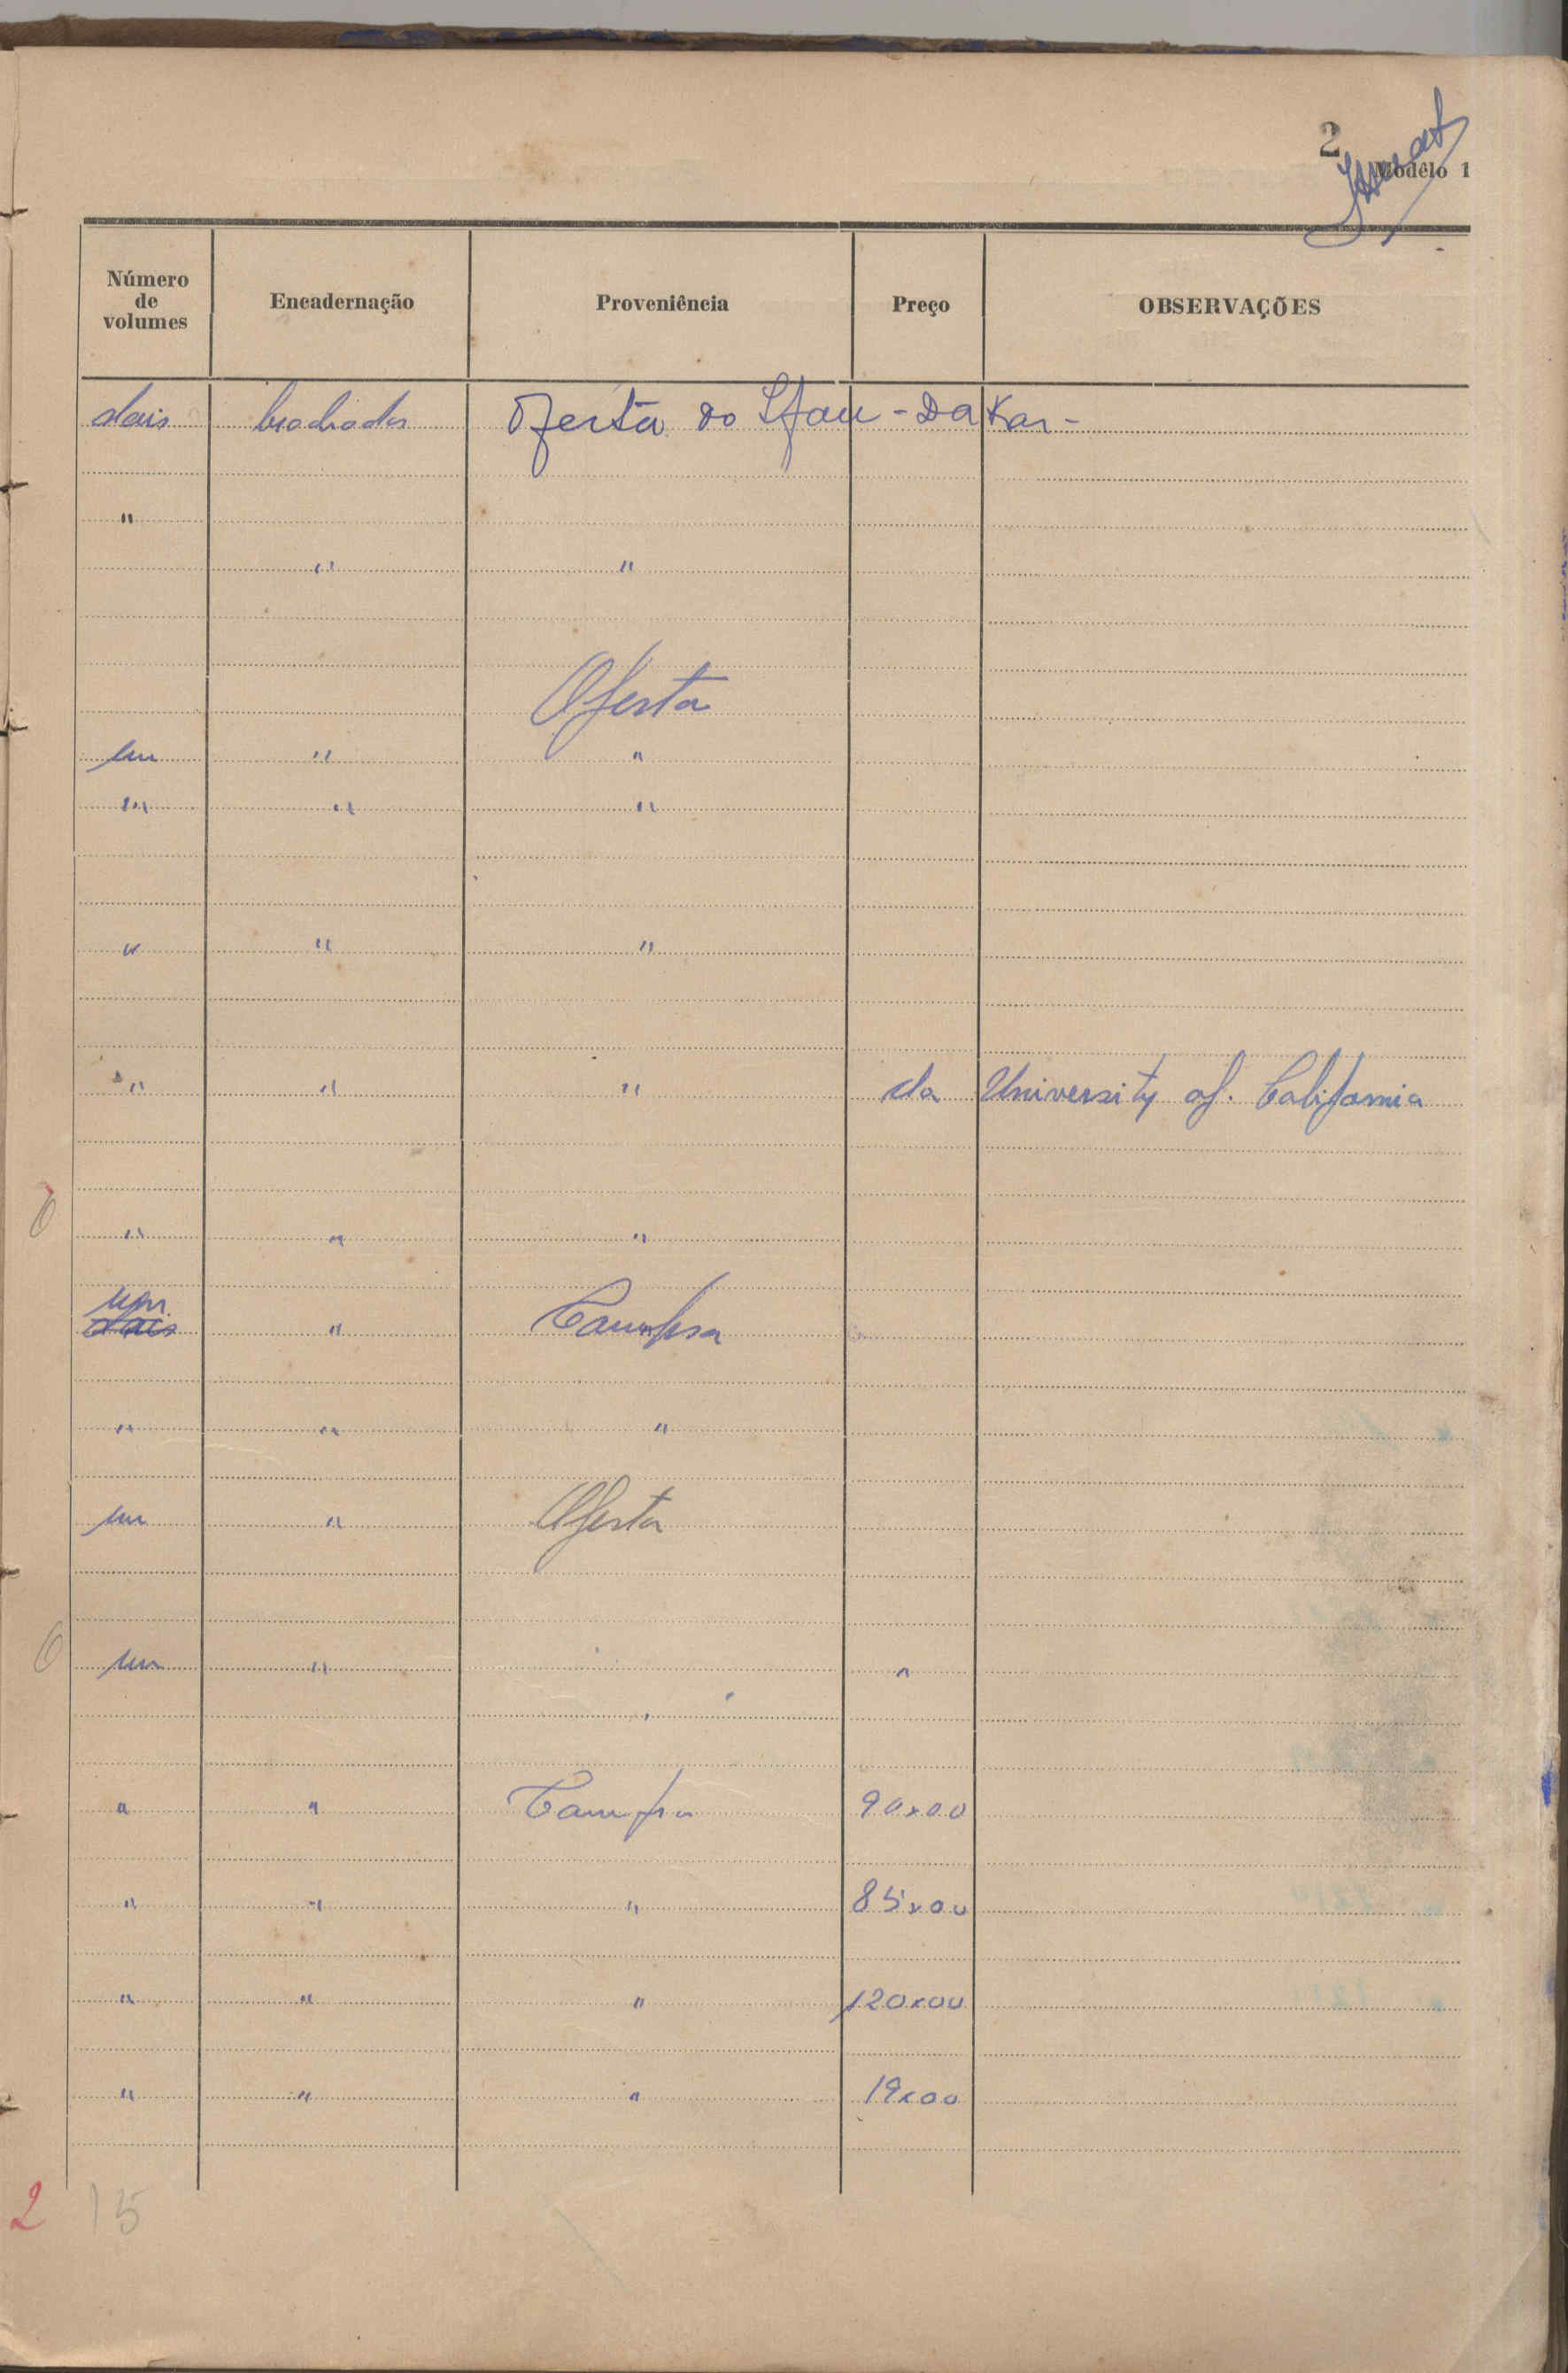 2
Modêlo 1
Número de volumes Encadernação Proveniência Preço OBSERVAÇÕES
dois brochados Oferta do Ifan - Dakar -
"
" "
Oferta
um " "
" " "
" " "
" " " da University of. California
" " "
um
dois " Compra
" " "
um " Oferta
um " "
" " Compra 90x00
" " " 85x00
" " " 120x00
" " " 19x00
2 15